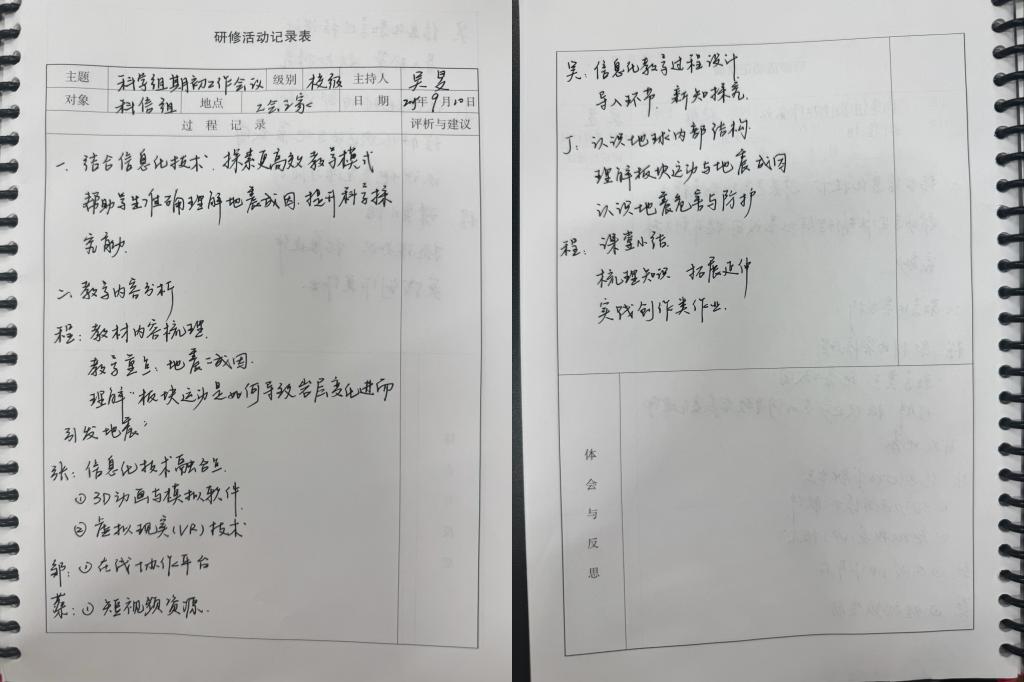 研修活动记录表
主题 科学组期初工作会议 级别 校级 主持人 吴旻
对象 科信组 地点 工会之家 日期 2025年9月10日
过程记录 评析与建议
一、结合信息化技术,探索更高效教学模式
帮助学生准确理解地震成因,提升科学探
究能力.
二、教学内容分析
程:教材内容梳理.
教学重点:地震成因.
理解“板块运动是如何导致岩层变化进而
引发地震”
张:信息化技术融合点.
① 3D动画与模拟软件.
② 虚拟现实(VR)技术
邹:① 在线协作平台
蔡:① 短视频资源.
吴:信息化教学过程设计.
导入环节,新知探究.
丁:认识地球内部结构.
理解板块运动与地震成因
认识地震危害与防护
程:课堂小结.
梳理知识 拓展延伸
实践创作类作业.
体会与反思